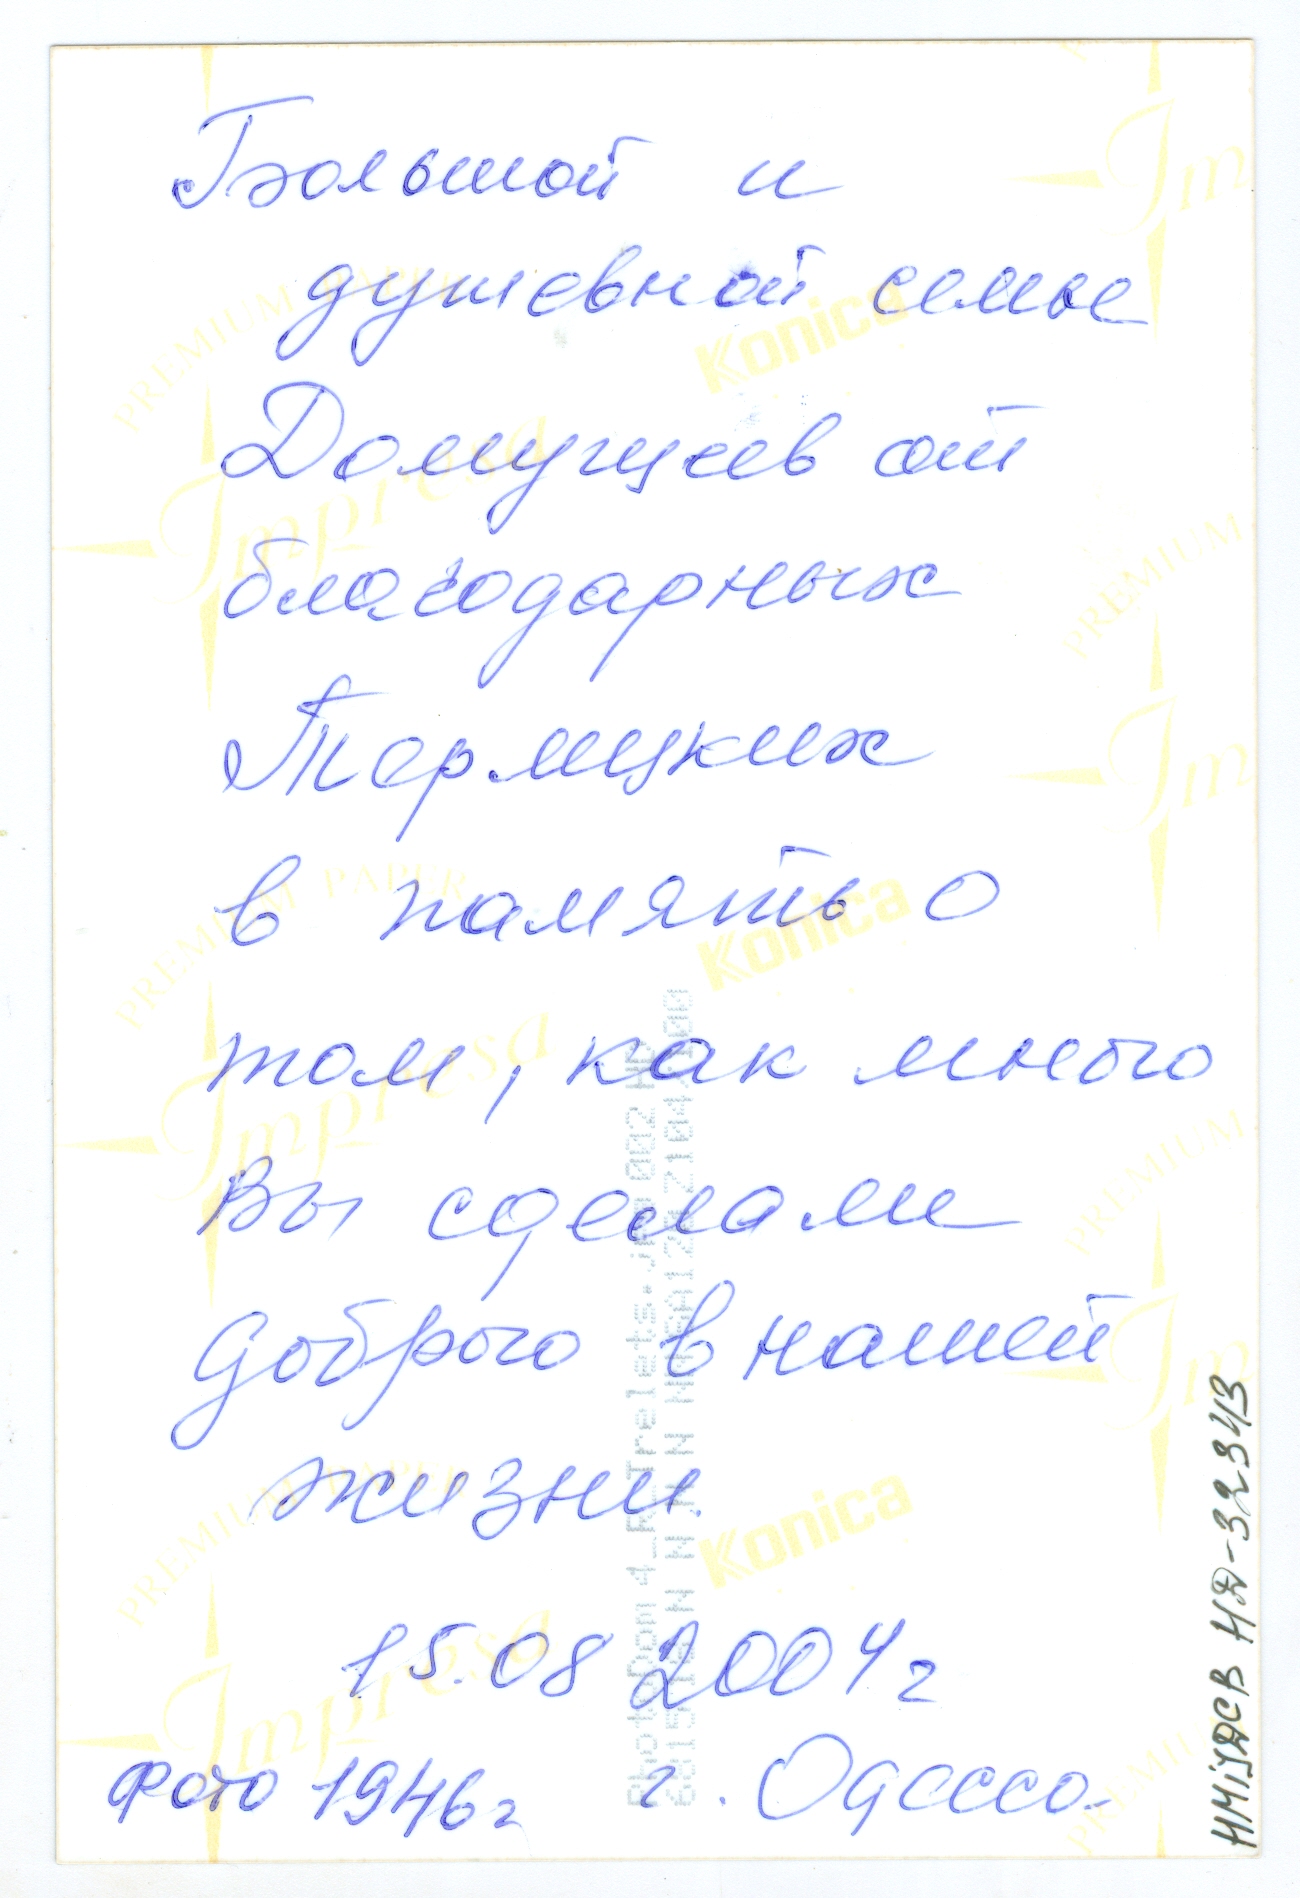 Большой и
душевной семье
Домущеев от
благодарных
Термицких
в память о
том, как много
Вы сделали
доброго в нашей
жизни.
15.08 2004 г
фото 1946 г г. Одесса.
PREMIUM PAPER
Impresa
Konica
НМІДСВ НД-32343